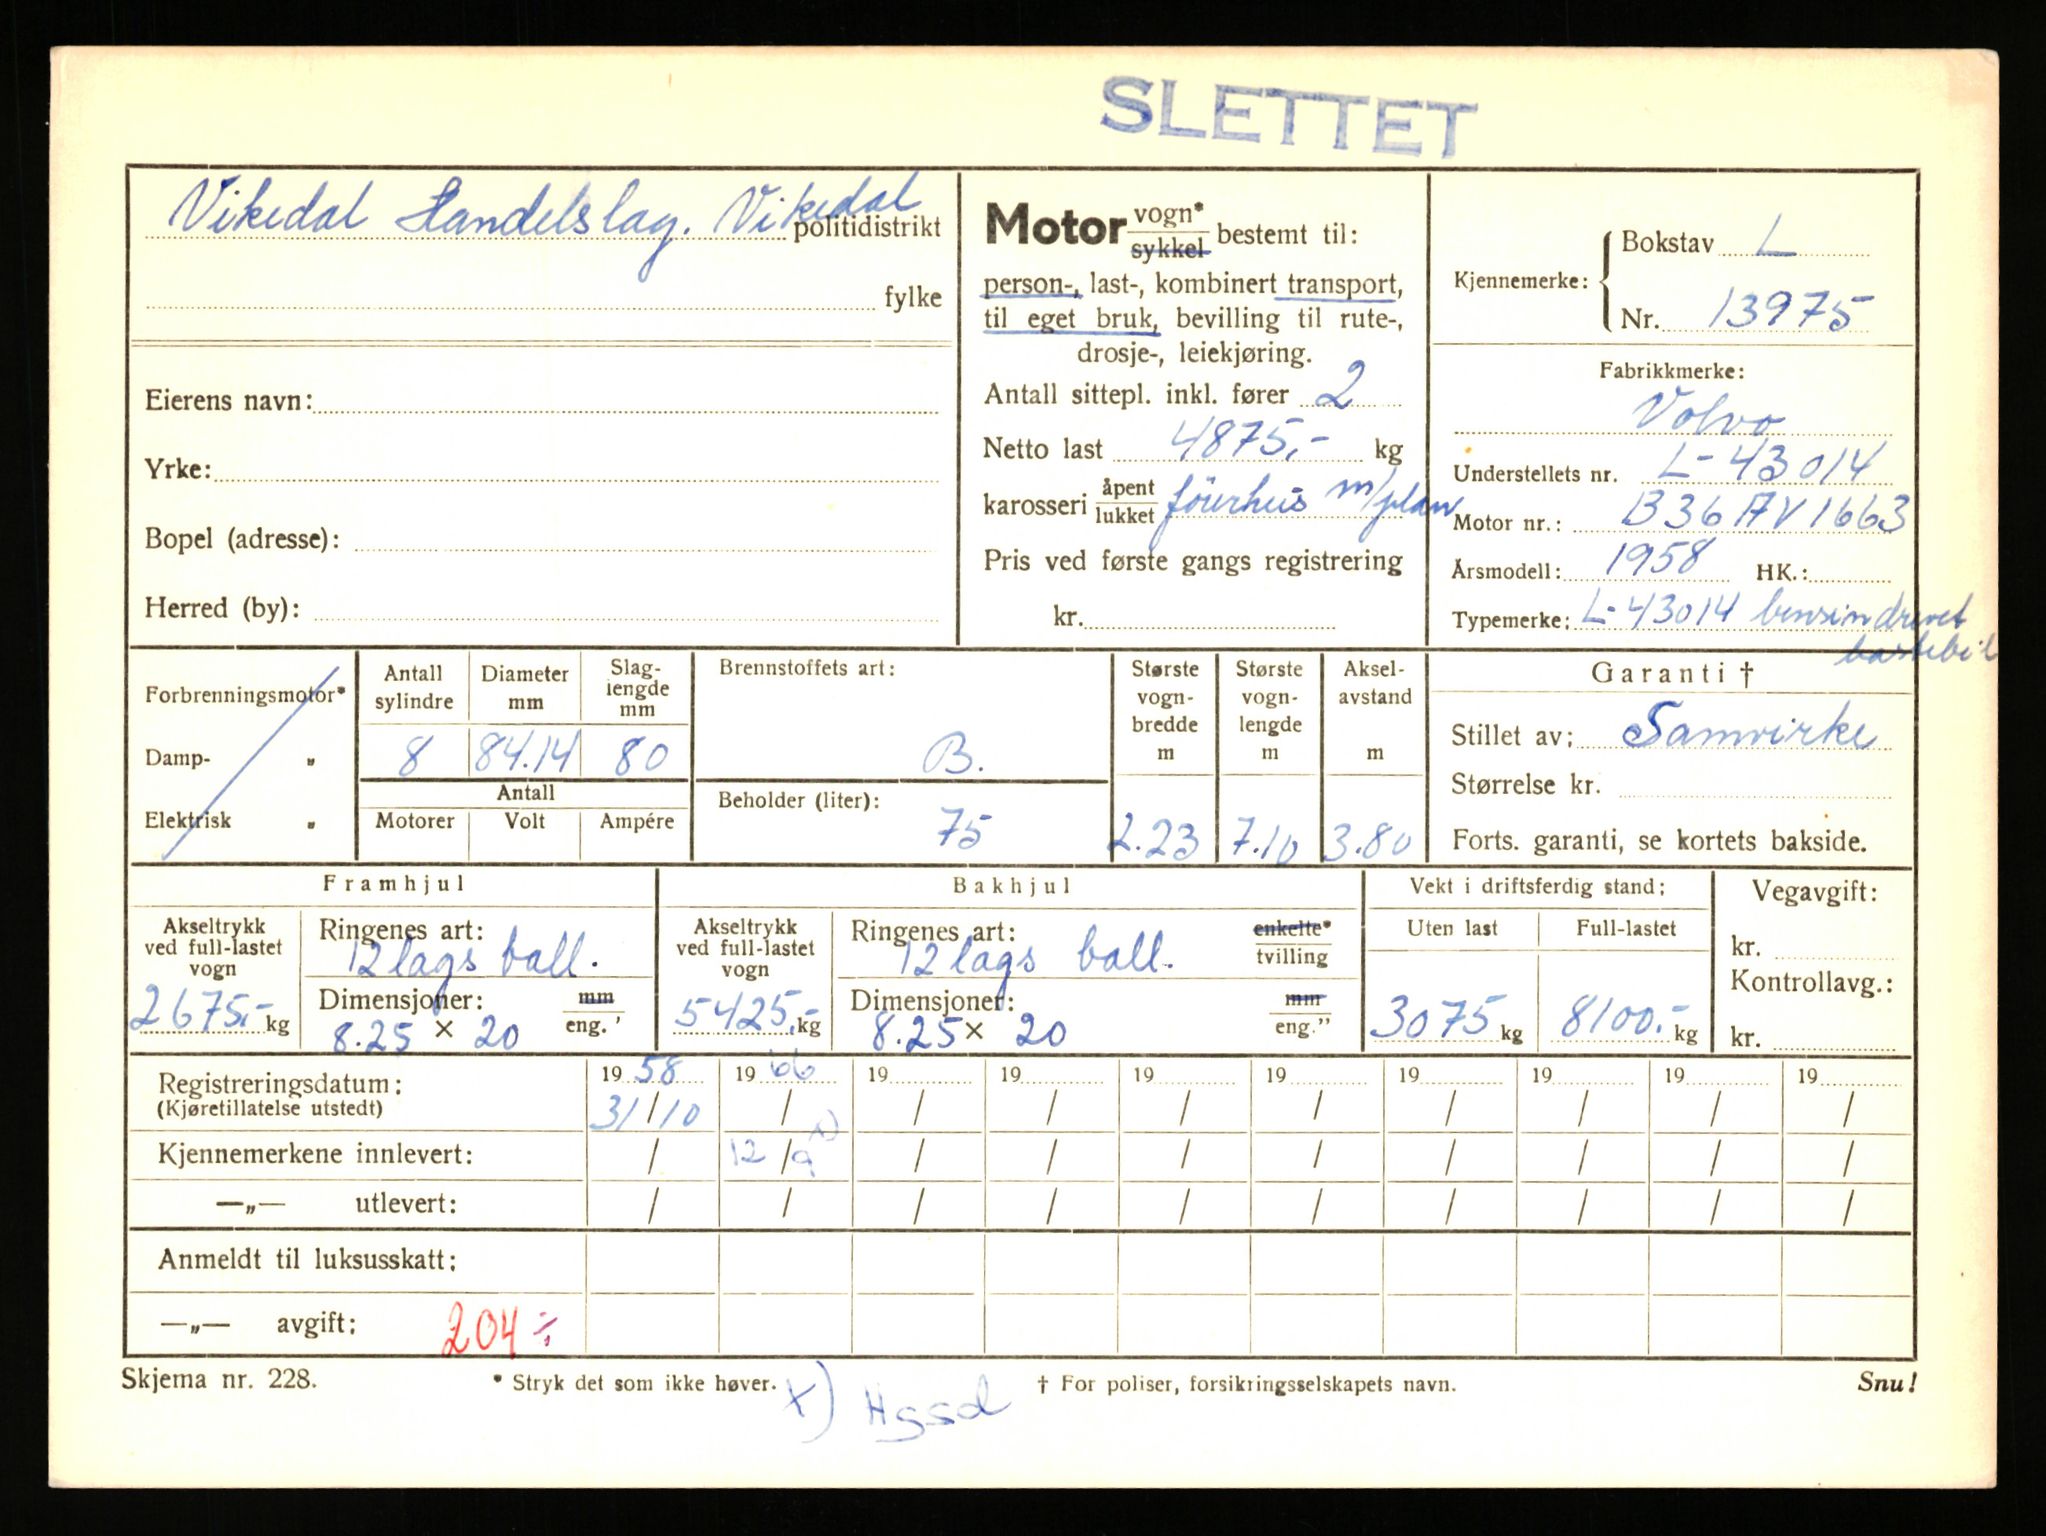 SLETTET
Vikedal Handelslag. Vikedal politidistrikt
fylke
Eierens navn:
Yrke:
Bopel (adresse):
Herred (by):
Motor vogn* sykkel bestemt til:
person-, last-, kombinert transport,
til eget bruk, bevilling til rute-,
drosje-, leiekjøring.
Antall sittepl. inkl. fører 2
Netto last 4875,- kg
karosseri åpent lukket förerhus m/plan
Pris ved første gangs registrering
kr.
Kjennemerke: Bokstav L
Nr. 13975
Fabrikkmerke:
Volvo
Understellets nr. L-43014
Motor nr.: B36AV1663
Årsmodell: 1958 HK.:
Typemerke: L-43014 bensindrevet
lastebil
Forbrenningsmotor*
Damp- "
Elektrisk "
Antall sylindre 8
Diameter mm 84.14
Slag-lengde mm 80
Antall
Motorer Volt Ampére
Brennstoffets art:
B.
Beholder (liter):
75
Største vogn-bredde m 2.23
Største vogn-lengde m 7.10
Aksel-avstand m 3.80
Garanti †
Stillet av: Samvirke
Størrelse kr.
Forts. garanti, se kortets bakside.
Framhjul
Akseltrykk ved full-lastet vogn 2675,- kg
Ringenes art: 12 lags ball.
Dimensjoner: mm eng. '
8.25 × 20
Bakhjul
Akseltrykk ved full-lastet vogn 5425,- kg
Ringenes art: enkelte* tvilling
12 lags ball.
Dimensjoner: mm eng."
8.25 × 20
Vekt i driftsferdig stand:
Uten last Full-lastet
3075 kg 8100.- kg
Vegavgift:
kr.
Kontrollavg.:
kr.
Registreringsdatum: 1958 1966 19 19 19 19 19 19 19 19
(Kjøretillatelse utstedt) 31/10 / / / / / / / / /
Kjennemerkene innlevert: / 12/9 x) / / / / / / / /
—„— utlevert: / / / / / / / / / /
Anmeldt til luksusskatt:
—„— avgift: 204,-
Skjema nr. 228. * Stryk det som ikke høver. † For poliser, forsikringsselskapets navn. Snu!
x) Hgsd